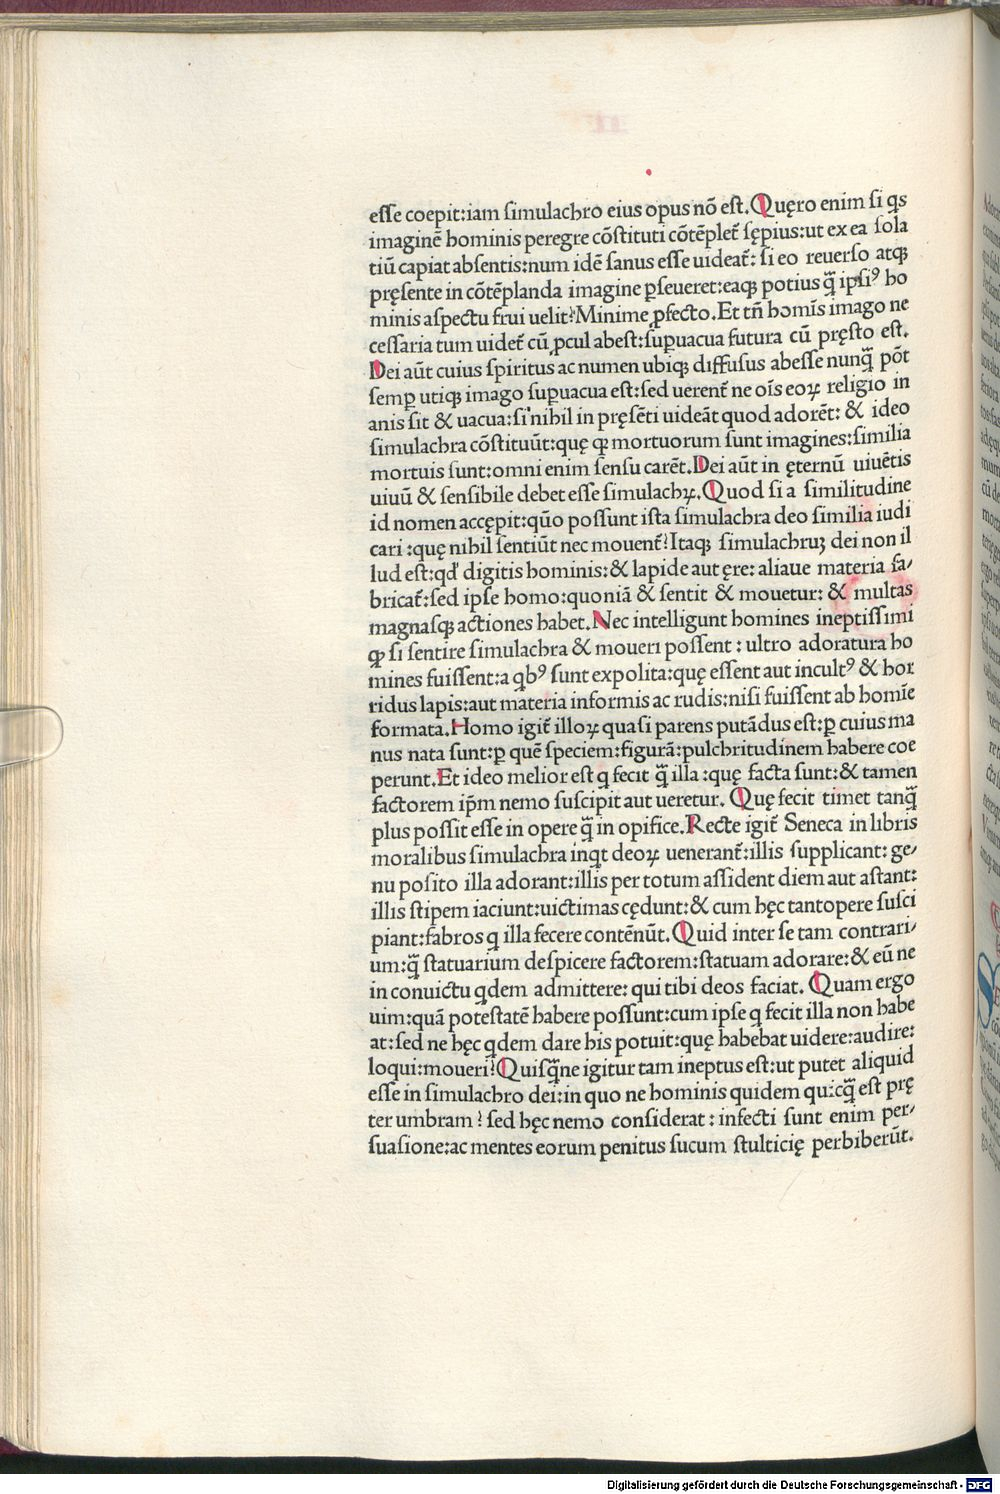 eſſe coepit:iam ſimulachro eius opus nõ eſt.Quęro enim ſi qs
imaginẽ hominis peregre cõſtituti cõtẽplet̃ ſępius:ut ex ea ſola
tiũ capiat abſentis:num idẽ ſanus eſſe uideat̃: ſi eo reuerſo atqꝫ
pręſente in cõtẽplanda imagine ꝑſeueret:eaqꝫ potius q̃ ipſiꝰ ho
minis aſpectu frui uelit?Minime ꝓfecto.Et tñ homĩs imago ne
ceſſaria tum uidet̃ cũ ꝓcul abeſt:ſuꝑuacua futura cũ pręſto eſt.
Dei aũt cuius ſpiritus ac numen ubiqꝫ diffuſus abeſſe nunq̃ põt
ſemꝑ utiqꝫ imago ſuꝑuacua eſt:ſed uerent̃ ne oĩs eoꝝ religio in
anis ſit & uacua:ſi nihil in pręſẽti uideãt quod adorẽt: & ideo
ſimulachra cõſtituũt:quę qꝫ mortuorum ſunt imagines:ſimilia
mortuis ſunt:omni enim ſenſu carẽt.Dei aũt in ęternũ uiuẽtis
uiuũ & ſenſibile debet eſſe ſimulachꝝ.Quod ſi a ſimilitudine
id nomen accępit:quõ poſſunt iſta ſimulachra deo ſimilia iudi
cari :quę nihil ſentiũt nec mouent̃?Itaqꝫ ſimulachruꝫ dei non il
lud eſt:qď digitis hominis:& lapide aut ęre: aliaue materia fa/
bricat̃:ſed ipſe homo:quoniã & ſentit & mouetur: & multas
magnaſqꝫ actiones habet.Nec intelligunt homines ineptiſſimi
qꝫ ſi ſentire ſimulachra & moueri poſſent : ultro adoratura ho
mines fuiſſent:a qbꝰ ſunt expolita:quę eſſent aut incultꝰ & hor
ridus lapis:aut materia informis ac rudis:niſi fuiſſent ab homĩe
formata.Homo igit̃ illoꝝ quaſi parens putãdus eſt:ꝑ cuius ma
nus nata ſunt:ꝑ quẽ ſpeciem:figurã:pulchritudinem habere coe
perunt.Et ideo melior eſt q fecit q̃ illa :quę facta ſunt:& tamen
factorem ip̃m nemo ſuſcipit aut ueretur. Quę fecit timet tanq̃
plus poſſit eſſe in opere q̃ in opifice.Recte igit̃ Seneca in libris
moralibus ſimulachra inqt deoꝝ uenerant̃:illis ſupplicant: ge/
nu poſito illa adorant:illis per totum aſſident diem aut aſtant:
illis ſtipem iaciunt:uictimas cędunt:& cum hęc tantopere ſuſci
piant:fabros q illa fecere contẽnũt.Quid inter ſe tam contrari/
um:q̃ ſtatuarium deſpicere factorem:ſtatuam adorare:& eũ ne
in conuictu qdem admittere: qui tibi deos faciat. Quam ergo
uim:quã poteſtatẽ habere poſſunt:cum ipſe q fecit illa non habe
at:ſed ne hęc qdem dare his potuit:quę habebat uidere:audire:
loqui:moueri?Quiſq̃ne igitur tam ineptus eſt:ut putet aliquid
eſſe in ſimulachro dei:in quo ne hominis quidem quicq̃ eſt prę
ter umbram ? ſed hęc nemo conſiderat : infecti ſunt enim per/
ſuaſione:ac mentes eorum penitus ſucum ſtulticię perbiberũt.
Digitalisierung gefördert durch die Deutsche Forschungsgemeinschaft - DFG